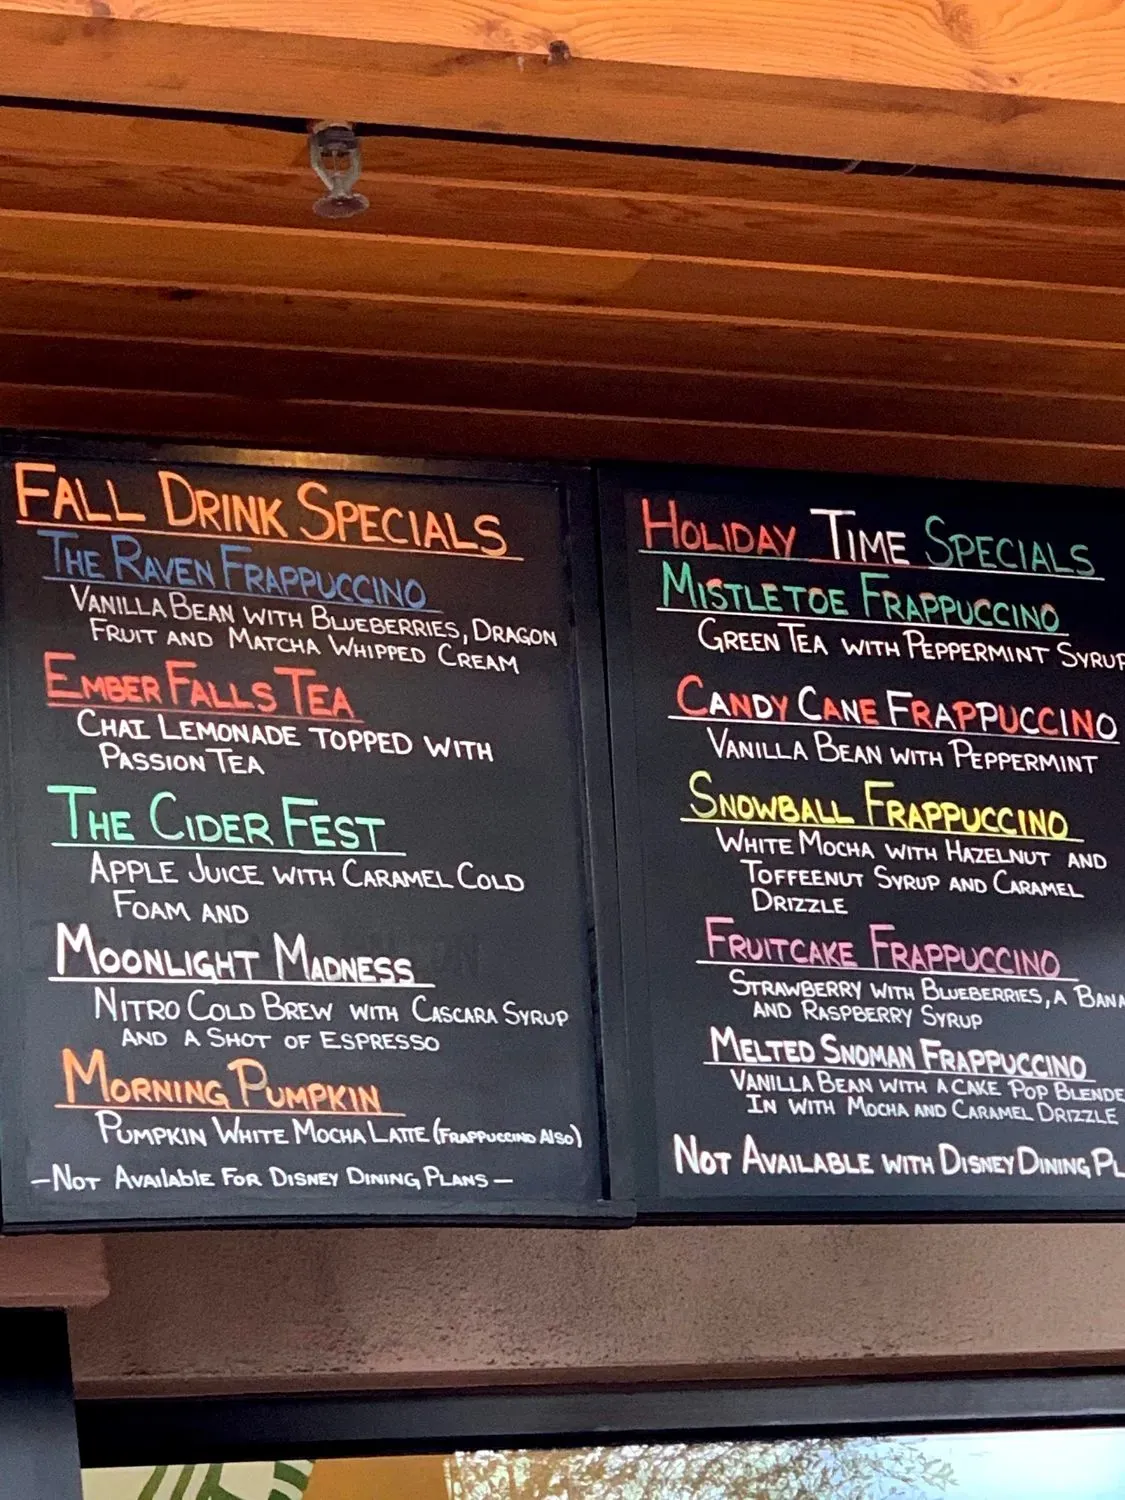 FALL DRINK SPECIALS
THE RAVEN FRAPPUCCINO
VANILLA BEAN WITH BLUEBERRIES, DRAGON
FRUIT AND MATCHA WHIPPED CREAM
EMBER FALLS TEA
CHAI LEMONADE TOPPED WITH
PASSION TEA
THE CIDER FEST
APPLE JUICE WITH CARAMEL COLD
FOAM AND
MOONLIGHT MADNESS
NITRO COLD BREW WITH CASCARA SYRUP
AND A SHOT OF ESPRESSO
MORNING PUMPKIN
PUMPKIN WHITE MOCHA LATTE (FRAPPUCCINO ALSO)
—NOT AVAILABLE FOR DISNEY DINING PLANS—
HOLIDAY TIME SPECIALS
MISTLETOE FRAPPUCCINO
GREEN TEA WITH PEPPERMINT SYRUP
CANDY CANE FRAPPUCCINO
VANILLA BEAN WITH PEPPERMINT
SNOWBALL FRAPPUCCINO
WHITE MOCHA WITH HAZELNUT AND
TOFFEENUT SYRUP AND CARAMEL
DRIZZLE
FRUITCAKE FRAPPUCCINO
STRAWBERRY WITH BLUEBERRIES, A BANA
AND RASPBERRY SYRUP
MELTED SNOMAN FRAPPUCCINO
VANILLA BEAN WITH A CAKE POP BLENDE
IN WITH MOCHA AND CARAMEL DRIZZLE
NOT AVAILABLE WITH DISNEY DINING PL